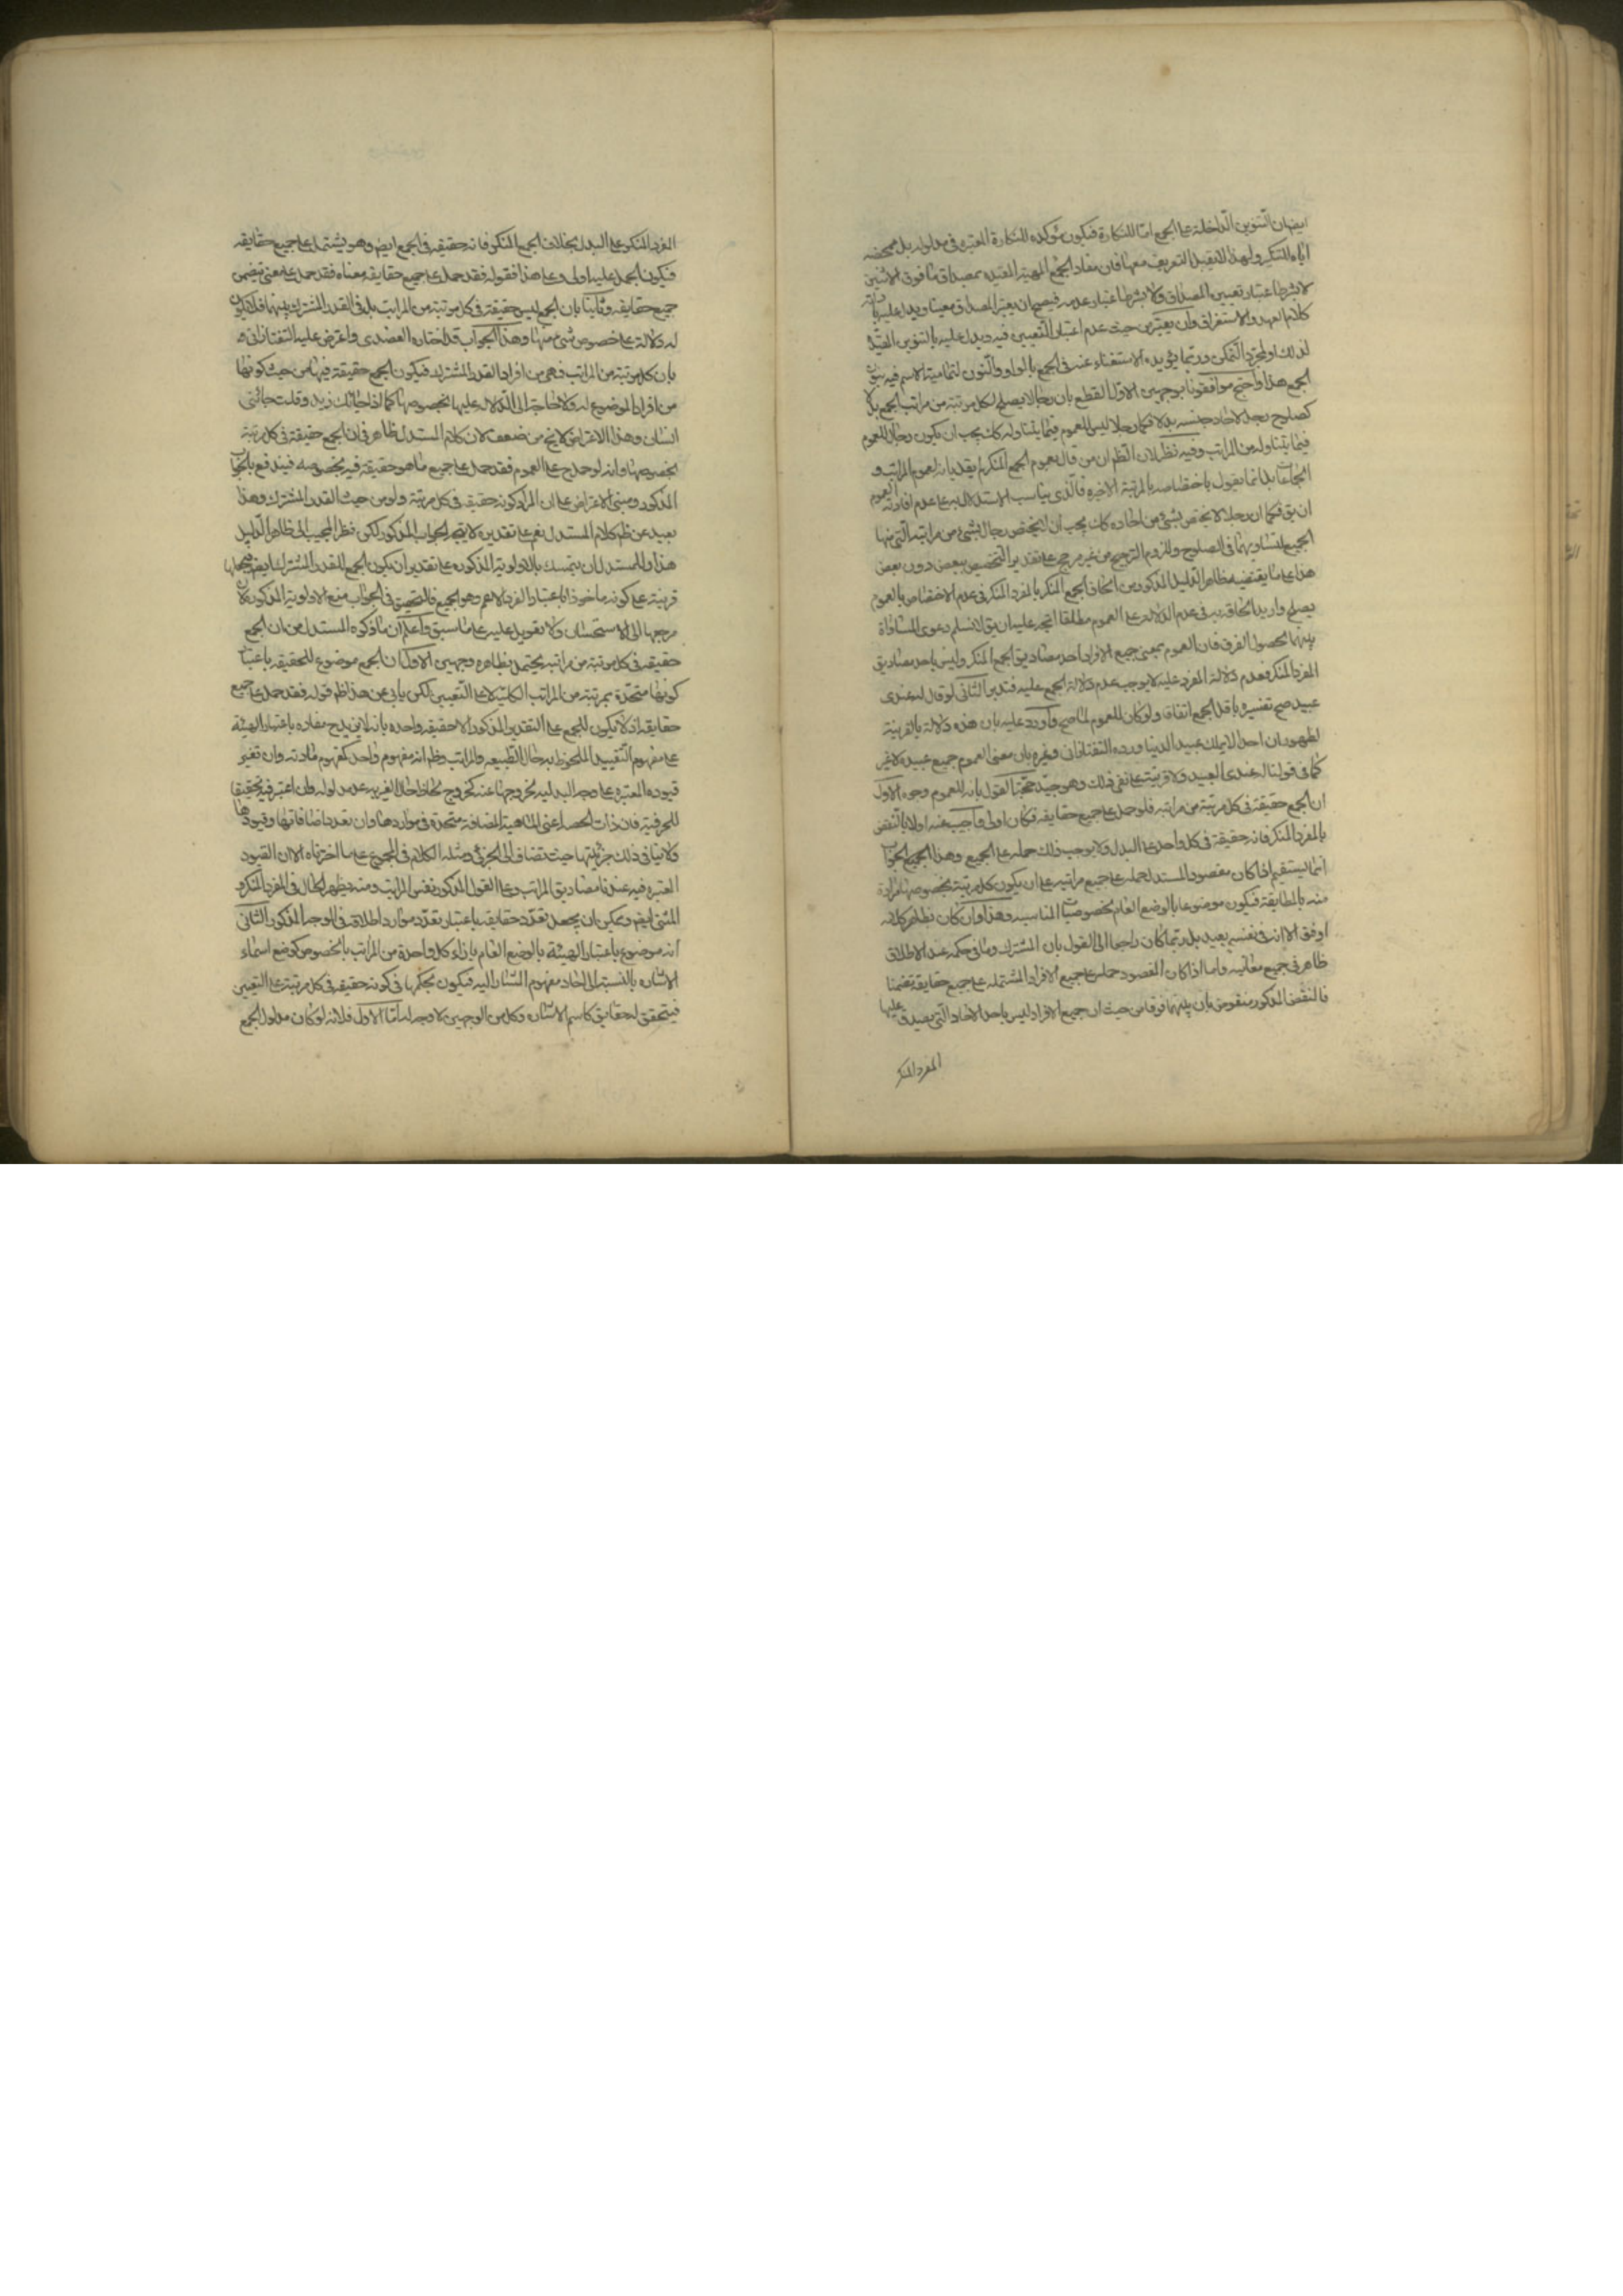 ايضا ان التنوين الداخلة على الجمع اما للنكارة فيكون مؤكده للنكارة المعتبرة في مدلوله بل محضه
اياه للتنكير ولهذا لا يقبل التعريف معها فان مفاد الجمع المهية المقيده بمصداق ما فوق الاثنين
لا بشرط اعتبار تعيين المصداق ولا بشرط اعتبار عدمه فيصح ان يعتبر المصداق معينا ويدل عليه بان
كلام العهد والاستغراق وان يعتبر من حيث عدم اعتبار التعيين فيه ويدل عليه بالتنوين المفيد
لذلك او لمجرد التمكن وربما يؤيده الاستغناء عنه في الجمع بالواو والنون لتمامية الاسم فيه بنون
الجمع هذا واحتج موافقونا بوجهين الاول القطع بان رجالا يصلح لكل مرتبة من مراتب الجمع بدلا
كصلوح رجل لآحاد جنسه بدلا فكما رجلا ليس للعموم فيما يتناوله كك يجب ان يكون رجال للعموم
فيما يتناوله من المراتب وفيه نظر لان الظم ان من قال بعموم الجمع المنكر لم يقل بانه لعموم المراتب و
الجماعات بل انما يقول باختصاصه بالمرتبة الاخيرة فالذي يناسب الاستدلال به على عدم افادته العموم
ان يق فكما ان رجلا لا يختص بشئ من احاده كك يجب ان لا يختص رجال بشئ من مراتبه التي منها
الجميع لتساويهما في الصلوح وللزوم الترجيح من غير مرجح على تقدير التخصيص ببعض دون بعض
هذا على ما يقتضيه ظاهر الدليل المذكور من الحاق الجمع المنكر بالمفرد المنكر في عدم الاختصاص بالعموم
يصلح واريد الحاقه به في عدم الدلالة على العموم مطلقا اتجه عليه ان يق لا نسلم دعوى المساواة
بينهما لحصول الفرق فان العموم بمعنى جميع الافراد احد مصاديق الجمع المنكر وليس باحد مصاديق
المفرد المنكر فعدم دلالة المفرد عليه لا يوجب عدم دلالة الجمع عليه فتدبر الثاني لو قال له عندى
عبيد صح تفسيره باقل الجمع اتفاقا ولو كان للعموم لما صح واورد عليه بان هذه دلالة بالقرينة
لظهور ان احدا لا يملك عبيد الدنيا ورده التفتازاني وغيره بان معنى العموم جميع عبيده لا غير
كما في قولنا له عندى العبيد ولا قرينة على نفي ذلك وهو جيد حجة القول بانه للعموم وجوه الاول
ان الجمع حقيقة في كل مرتبة من مراتبه فلو حمل على جميع حقايقه فكان اولى واجيب عنه اولا بالنقض
بالمفرد المنكر فانه حقيقة في كل واحد على البدل ولا يوجب ذلك حمله على الجميع وهذا الجواب
انما يستقيم اذا كان مقصود المستدل حمله على جميع مراتبه على ان يكون كل مرتبة بخصوصها مرادة
منه بالمطابقة فيكون موضوعا بالوضع العام لخصوصيات المناسبه وهذا وان كان بظاهر كلامه
اوفق الا انه في نفسه بعيد بل ربما كان راجعا الى القول بان المشترك وما في حكمه عند الاطلاق
ظاهر في جميع معانيه واما اذا كان المقصود حمله على جميع الافراد المشتمله على جميع حقايقه تضمنا
فالنقض المذكور منقوض بان بينهما فرقا من حيث ان جميع الافراد ليس باحد الاحاد التي يصدق عليها
المفرد المنكر
المفرد المنكر على البدل بخلاف الجمع المنكر فانه حقيقه في الجمع ايض وهو يشتمل على جميع حقايقه
فيكون الحمل عليه اولى وعلى هذا فقوله فقد حمل على جميع حقايقه معناه فقد حمل على معنى تيضمن
جميع حقايقه وثانيا بان الجمع ليس حقيقة في كل مرتبة من المراتب بل في القدر المشترك بينها فلا يكون
له دلالة على خصوص شئ منها وهذا الجواب قد اختاره العضدى واعترض عليه التفتازاني
بان كل مرتبة من المراتب فهي من افراد القدر المشترك فيكون الجمع حقيقة فيها من حيث كونها
من افراد الموضوع له ولا حاجة الى الدلالة عليها بخصوصها كما اذا جائك زيد وقلت جائنى
انسان وهذا الاعتراض لا يخ من ضعف لان كلام المستدل ظاهر في ان الجمع حقيقة في كل مرتبة
بخصوصها وانه لو حمل ح على العموم فقد حمل على جميع ما هو حقيقة فيه بخصوصه فيندفع بالجواب
المذكور ومبنى الاعتراض على ان المراد كونه حقيقة في كل مرتبة ولو من حيث القدر المشترك وهذا
بعيد عن ظم كلام المستدل نعم على تقديره لا يتجه الجواب المذكور لكن نظر المجيب الى ظاهر الدليل
هذا وللمستدل ان يتمسك بالاولوية المذكوره على تقدير ان يكون الجمع للقدر المشترك ايض
قرينة على كونه ماخوذا باعتبار الفرد الاعم وهو الجميع فالتحقيق في الجواب منع الاولوية المذكورة لان
مرجعها الى الاستحسان ولا تعويل عليه على ما سبق واعلم ان ما ذكره المستدل من ان الجمع
حقيقة في كل مرتبة من مراتبه يحتمل بظاهره وجهين الاول ان الجمع موضوع للحقيقه باعتبار
كونها متحدة بمرتبة من المراتب الكليّة لا على التعيين لكن يابي عن هذا ظم قوله فقد حمل على جميع
حقايقه اذ لا يكون للجمع على التقدير المذكور الا حقيقه واحده بانه لا يزيد ح مفاده باعتبار الهيئة
على مفهوم التقييد الملحوظ به حال الطبيعه والمراتب وظم انه مفهوم واحد كمفهوم مادته وان تغير
قيوده المعتبرة على وجه البدليه لخروجها عنه كخروج
للحرفية فان ذات الحصة اعني الماهية المضافة متحدة في مواردها وان تعدد اضافاتها وقيودها
ولا ينافي ذلك جزئيتها حيث تضاف الى الجزئى ومثله الكلام في المجموع على ما اخترناه الا ان القيود
المعتبره فيه عندنا مصاديق المراتب وعلى القول المذكور نفس المراتب ومنه يظهر الحال في المفرد المنكر و
المثنى ايض ويمكن ان يجعل تعدّد حقايقه باعتبار تعدّد موارد اطلاقه في الوجه المذكور الثاني
انه موضوع باعتبار الهيئة بالوضع العام بازاء كل واحدة من المراتب بالخصوص كوضع اسماء
الاشارة بالنسبة الى احاد مفهوم المشار اليه فيكون بحكمها في كونه حقيقه في كل مرتبة على التعيين
فيتحقق له حقايق كاسم الاشارة وكل من الوجهين لا وجه له اما الاول فلانه لو كان مدلول الجمع